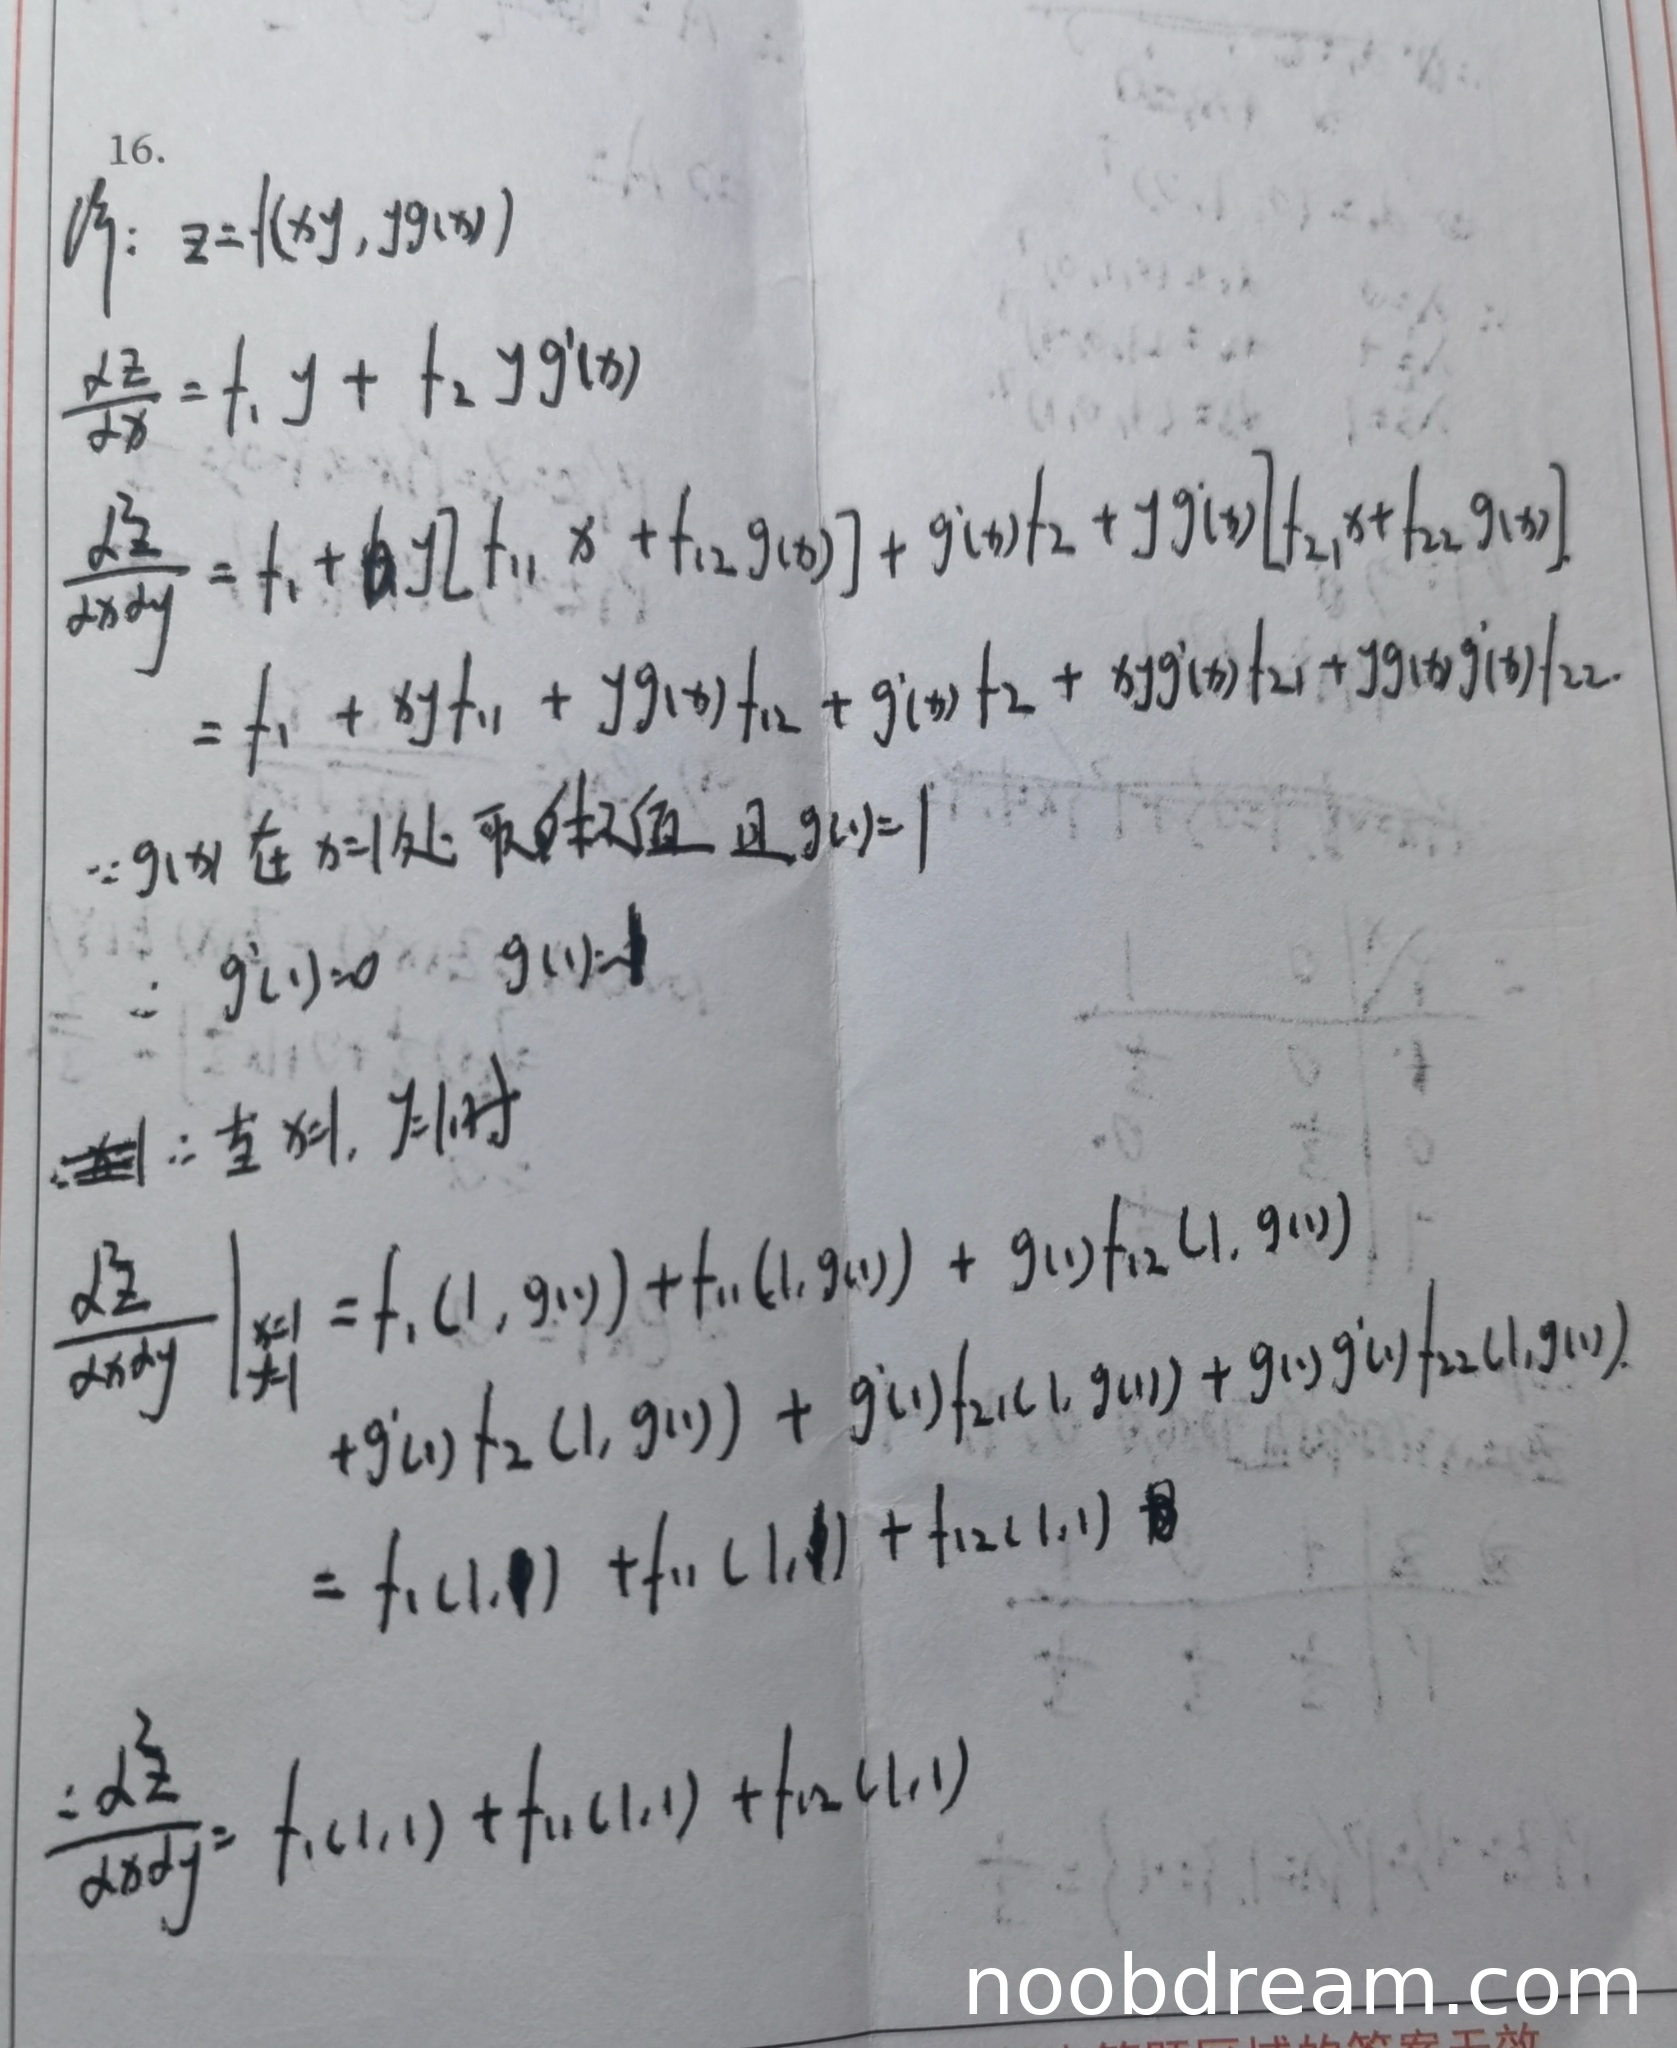 16.
解: z=f(xy, yg(x))
∂z/∂x = f₁ y + f₂ y g'(x)
∂²z/∂x∂y = f₁ + y[f₁₁ x + f₁₂ g(x)] + g'(x)f₂ + y g'(x)[f₂₁ x + f₂₂ g(x)].
= f₁ + xy f₁₁ + y g(x) f₁₂ + g'(x) f₂ + xy g'(x) f₂₁ + y g(x) g'(x) f₂₂.
∵ g(x) 在 x=1 处 取 极值 且 g(1)=1
∴ g'(1)=0 g(1)=1
∴ 当 x=1, y=1时
∂²z/∂x∂y | x=1 y=1 = f₁(1, g(1)) + f₁₁(1, g(1)) + g(1) f₁₂(1, g(1))
+ g'(1) f₂(1, g(1)) + g'(1) f₂₁(1, g(1)) + g(1) g'(1) f₂₂(1, g(1)).
= f₁(1,1) + f₁₁(1,1) + f₁₂(1,1)
∴ ∂²z/∂x∂y = f₁(1,1) + f₁₁(1,1) + f₁₂(1,1)
noobdream.com
答题区域的答案无效